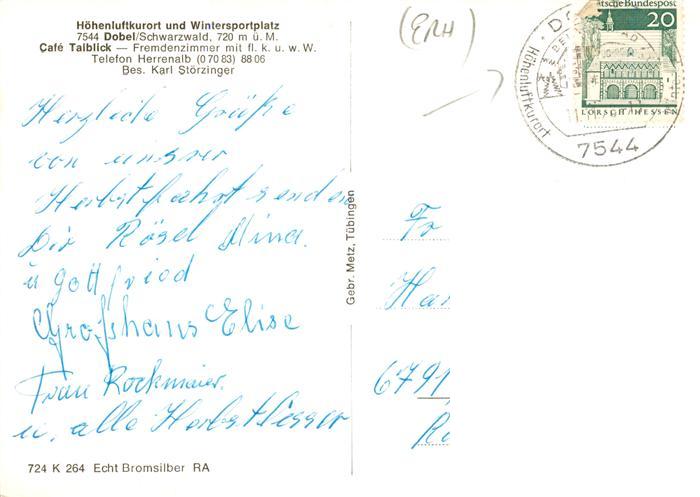 Höhenluftkurort und Wintersportplatz
7544 Dobel/Schwarzwald, 720 m ü. M.
Café Talblick — Fremdenzimmer mit fl. k. u. w. W.
Telefon Herrenalb (0 70 83) 88 06
Bes. Karl Störzinger
Herzliche Grüße
von unsrer
Herbstfahrt senden
Dir Rösel Mina.
u Gottfried
Großhans Elise
Frau Rockmaier.
u. alle
724 K 264 Echt Bromsilber RA
Gebr. Metz, Tübingen
(ERH)
Deutsche Bundespost
20
LORSCH/HESSEN
Höhenluftkurort
7544
Fr
Ha
6791